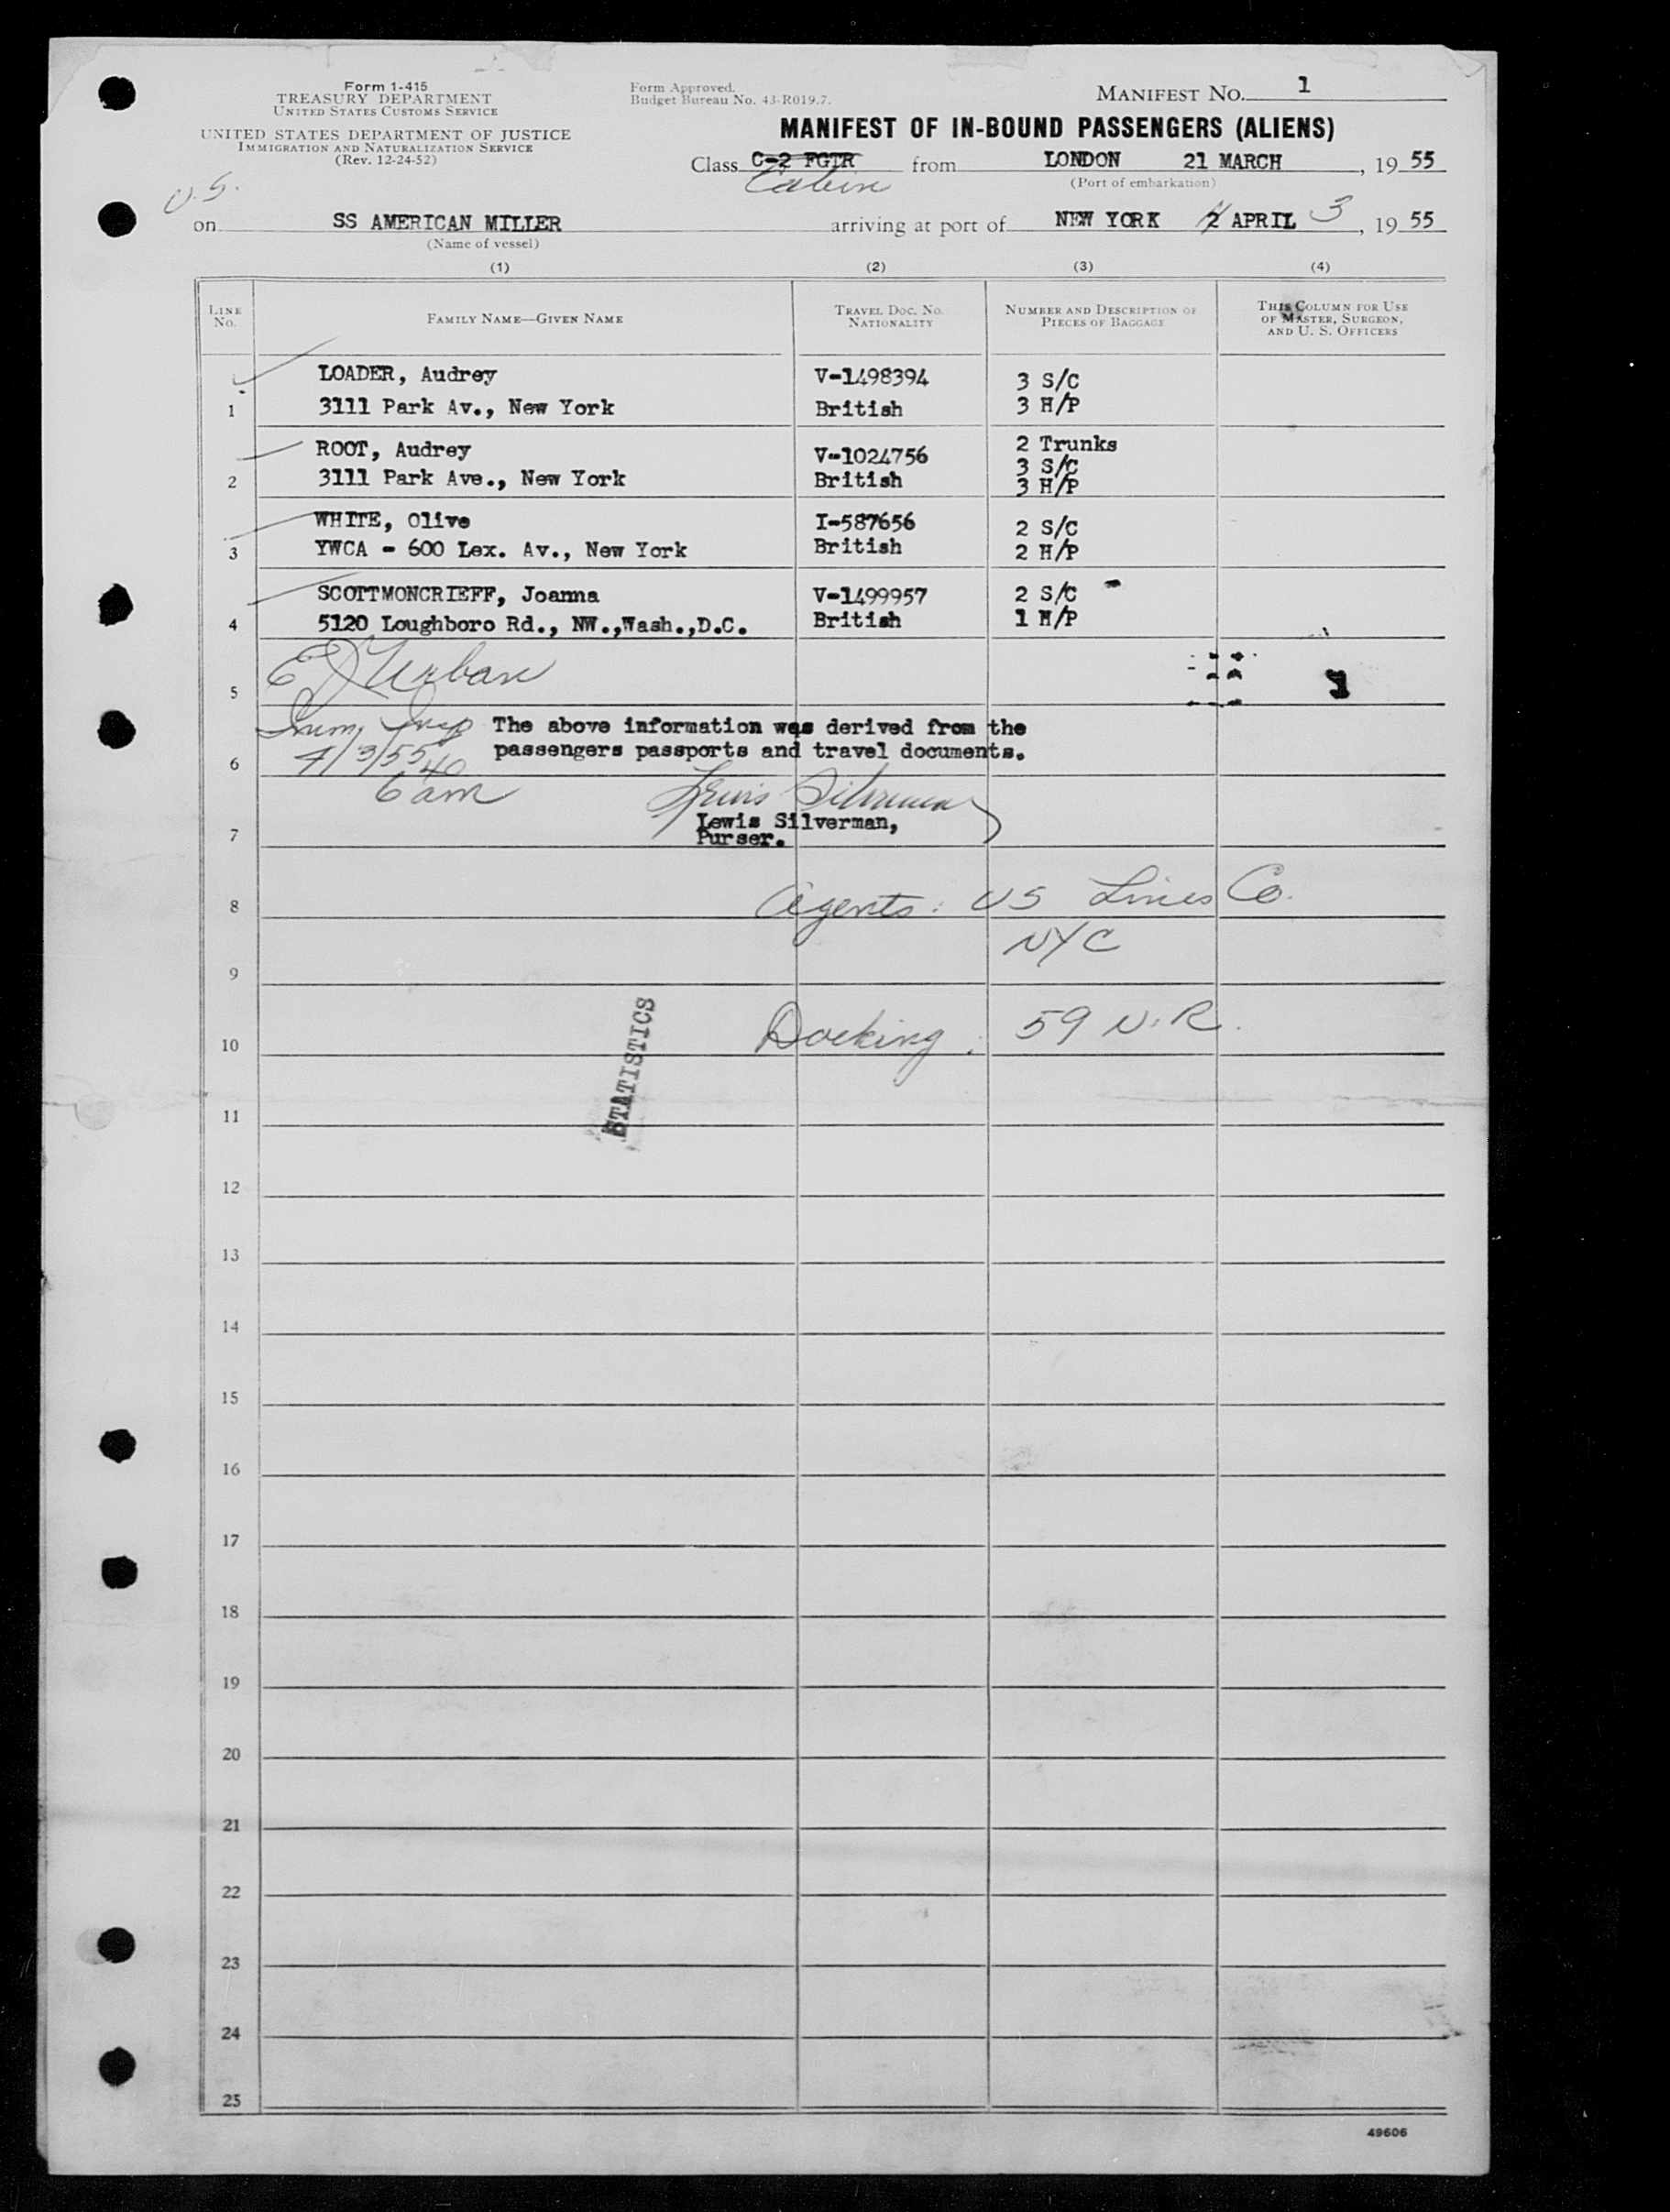 Form 1-415
TREASURY DEPARTMENT
UNITED STATES CUSTOMS SERVICE
UNITED STATES DEPARTMENT OF JUSTICE
IMMIGRATION AND NATURALIZATION SERVICE
(Rev. 12-24-52)
Form Approved.
Budget Bureau No. 43-R019.7.
MANIFEST NO. 1
MANIFEST OF IN-BOUND PASSENGERS (ALIENS)
Class C-2 FGTR from LONDON 21 MARCH, 19 55
Cabin
(Port of embarkation)
U.S.
on SS AMERICAN MILLER arriving at port of NEW YORK 2 APRIL 3, 19 55
(Name of vessel)
(1) (2) (3) (4)
LINE NO. FAMILY NAME—GIVEN NAME TRAVEL DOC. NO. NATIONALITY NUMBER AND DESCRIPTION OF PIECES OF BAGGAGE THIS COLUMN FOR USE OF MASTER, SURGEON, AND U. S. OFFICERS
LOADER, Audrey V-1498394 3 S/C
1 3111 Park Av., New York British 3 H/P
ROOT, Audrey V-1024756 2 Trunks
3 S/C
2 3111 Park Ave., New York British 3 H/P
WHITE, Olive I-587656 2 S/C
3 YWCA - 600 Lex. Av., New York British 2 H/P
SCOTTMONCRIEFF, Joanna V-1499957 2 S/C
4 5120 Loughboro Rd., NW.,Wash.,D.C. British 1 H/P
5 E J Urban
Imm, Insp The above information was derived from the
6 4/3/55 passengers passports and travel documents.
6 40 am Lewis Silverman
Lewis Silverman,
7 Purser.
8 Agents: US Lines Co.
NYC
9
10 Docking: 59 N.R.
STATISTICS
11
12
13
14
15
16
17
18
19
20
21
22
23
24
25
49606